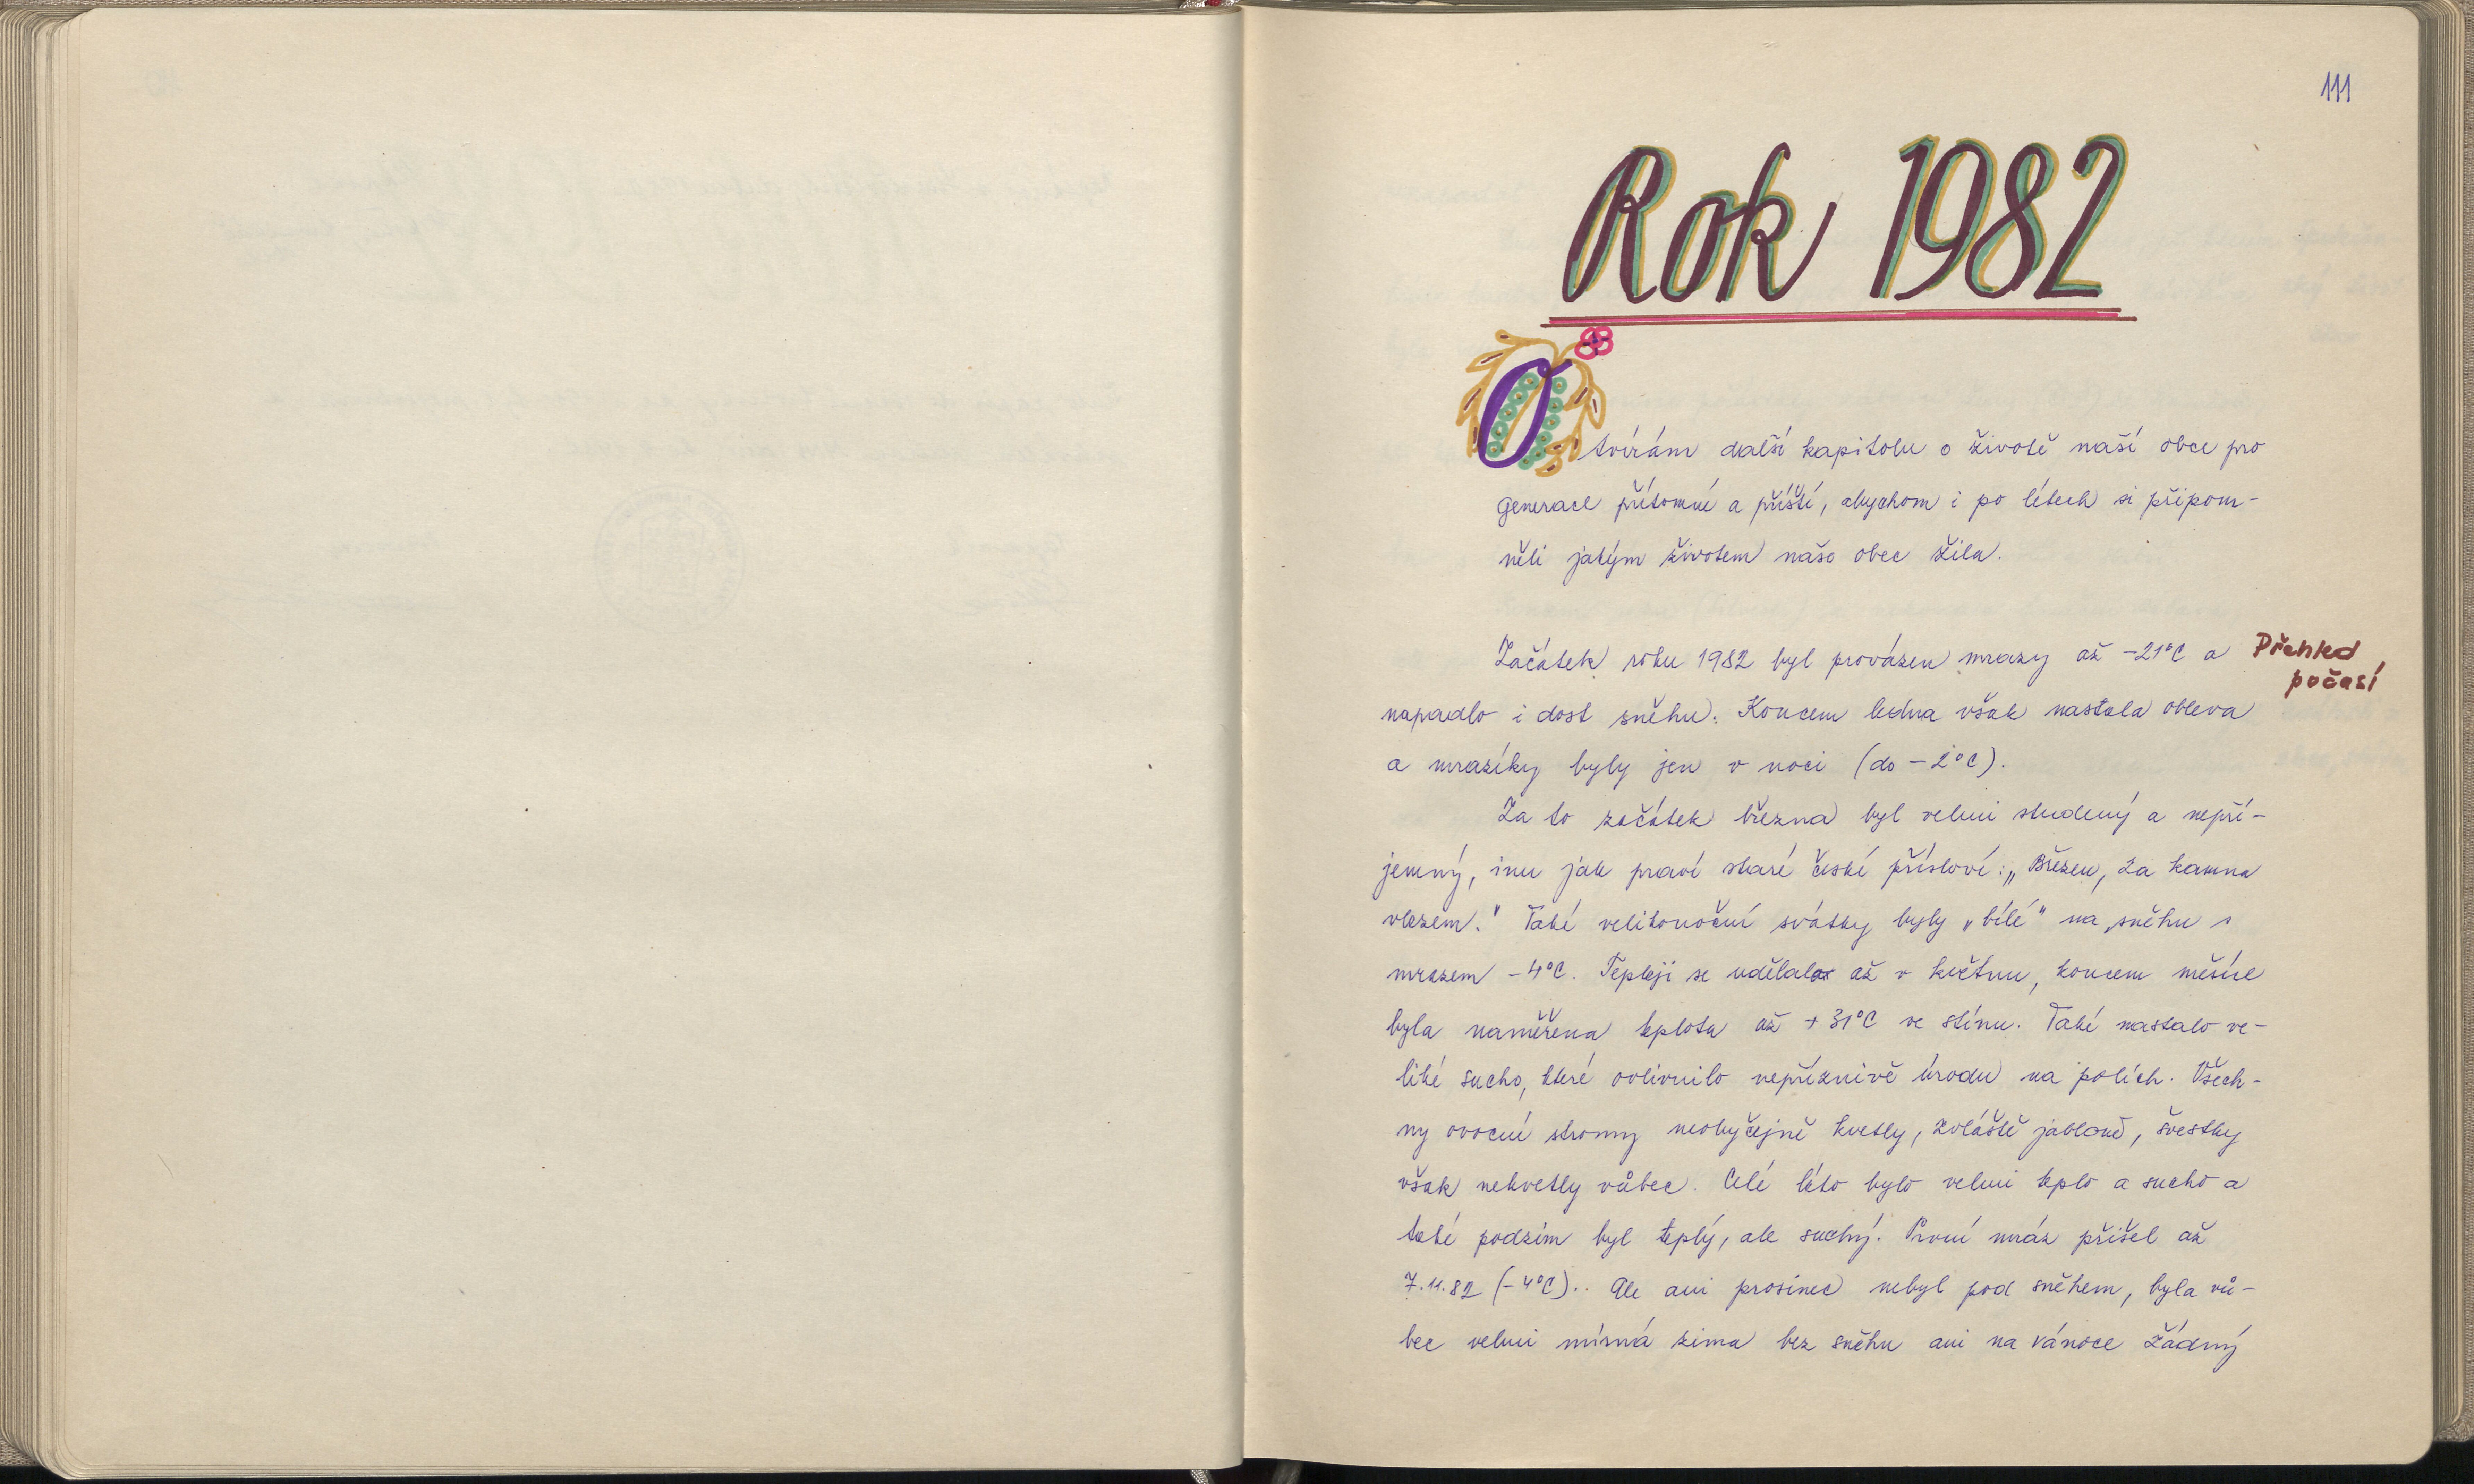 111
Rok 1982
Otvírám další kapitolu o životě naší obce pro
generace přítomné a příští, abychom i po létech si připom-
něli jakým životem naše obec žila.
Začátek roku 1982 byl provázen mrazy až -21°C a
Přehled
počasí
napadlo i dost sněhu. Koncem ledna však nastala obleva
a mrazíky byly jen v noci (do -2°C).
Za to začátek března byl velmi studený a nepří-
jemný, inu jak praví staré české přísloví: „Březen, za kamna
vlezem." Také velikonoční svátky byly „bílé" na sněhu s
mrazem -4°C. Tepleji se udělalo až v květnu, koncem měsíce
byla naměřena teplota až +31°C ve stínu. Také nastalo ve-
liké sucho, které ovlivnilo nepříznivě úrodu na polích. Všech-
ny ovocné stromy neobyčejně kvetly, zvláště jabloně, švestky
však nekvetly vůbec. Celé léto bylo velmi teplo a sucho a
také podzim byl teplý, ale suchý. První mráz přišel až
7.11.82 (-4°C).. Ale ani prosinec nebyl pod sněhem, byla vů-
bec velmi mírná zima bez sněhu ani na vánoce žádný